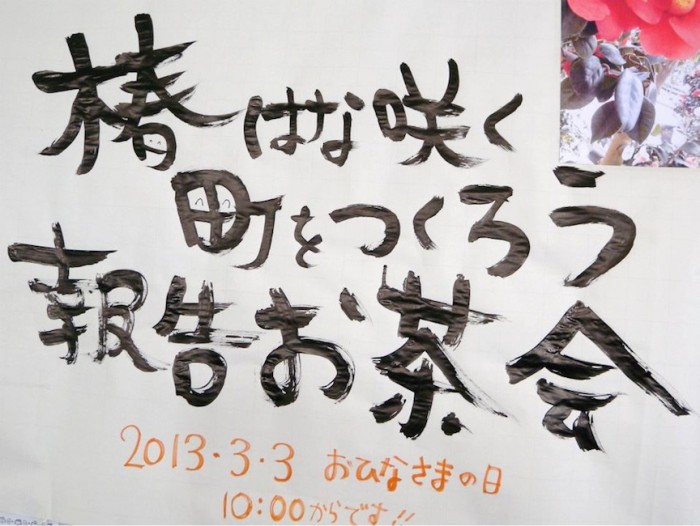 椿はな咲く
町をつくろう
報告お茶会
2013・3・3 おひなさまの日
10:00からです!!